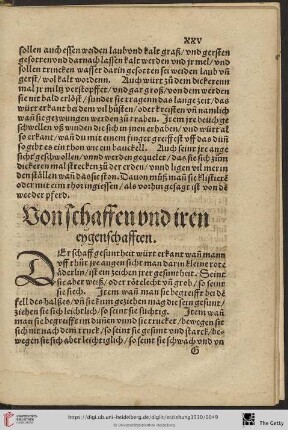 XXV
sollen auch essen weiden laub vnd kalt graß/ vnd gersten
gesotten vnd darnach lassen kalt werden vnd jr mel/ vnd
sollen trincken wasser darin gesotten sei weiden laub vñ
gerst/ wol kalt worden. Auch würt zů dem dickeren
mal jr miltz verstopffet/ vnd gar groß/ von dem werden
sie nit bald erlößt/ sunder sie tragen das lange zeit/ das
würt erkant bei dem vil hůsten/ oder kreisten vñ nämlich
wañ sie gezwungen werden zů traben. Item jre beuch ge
schwellen
so erkant/ wañ du mit einem finger greiffest vff das dũn
so gibt es ein thon wie ein bauckell. Auch seint jre ange
sicht geschwollen/ vnnd werden gequelet/ das sie sich zům
dickeren mal strecken zů der erden/ vnnd ligen vil mer in
den ställen wañ das sie ston. Dauon můß man sie klistieren
oder mit ein rhor in giessen/ als vorhin gesagt ist von de
werder pferd.
Von schaffen vnd iren
eygenschafften.
DEr schaff gesuntheit würt erkant wañ mann
vff thůt jre augen sicht man darin kleine rote
äderlin/ ist ein zeichen jrer gesuntheit. Seint
sie aber weiß/ oder rötelecht vñ grob/ so seint
sie siech. Item wañ man sie begreifft bei dē
fell des halses/ vñ sie kum geziehen mag die sein gesunt/
ziehen sie sich leichtlich/ so seint sie süchtig. Item wann
man sie begreifft im dünen vnnd sie trucket/ bewegen sie
sich nit nach dem truck/ so seint sie gesunt vnd starck/ be-
wegen sie sich aber leichtiglich/ so seint sie schwach vnd vn
G
https://digi.ub.uni-heidelberg.de/diglit/erziehung1530/0049
© Universitätsbibliothek Heidelberg
The Getty